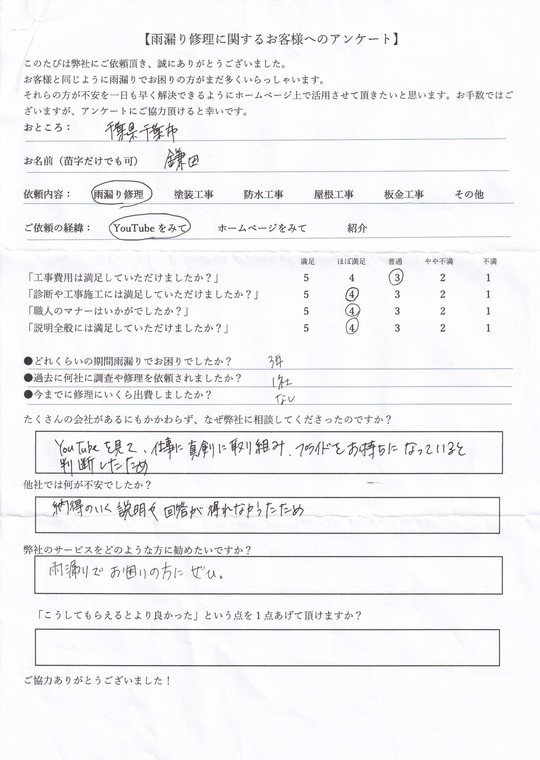 【雨漏り修理に関するお客様へのアンケート】
このたびは弊社にご依頼頂き、誠にありがとうございました。
お客様と同じように雨漏りでお困りの方がまだ多くいらっしゃいます。
それらの方が不安を一日も早く解決できるようにホームページ上で活用させて頂きたいと思います。お手数ではご
ざいますが、アンケートにご協力頂けると幸いです。
おところ： 千葉県千葉市
お名前（苗字だけでも可） 鎌田
依頼内容： 雨漏り修理 塗装工事 防水工事 屋根工事 板金工事 その他
ご依頼の経緯： YouTubeをみて ホームページをみて 紹介
満足 ほぼ満足 普通 やや不満 不満
「工事費用は満足していただけましたか？」 5 4 3 2 1
「診断や工事施工には満足していただけましたか？」 5 4 3 2 1
「職人のマナーはいかがでしたか？」 5 4 3 2 1
「説明全般には満足していただけましたか？」 5 4 3 2 1
●どれくらいの期間雨漏りでお困りでしたか？ 3年
●過去に何社に調査や修理を依頼されましたか？ 1社
●今までに修理にいくら出費しましたか？ なし
たくさんの会社があるにもかかわらず、なぜ弊社に相談してくださったのですか？
YouTubeを見て、仕事に真剣に取り組み、プライドをお持ちになっていると
判断したため
他社では何が不安でしたか？
納得のいく説明や回答が得れなかったため
弊社のサービスをどのような方に勧めたいですか？
雨漏りでお困りの方にぜひ。
「こうしてもらえるとより良かった」という点を１点あげて頂けますか？
ご協力ありがとうございました！